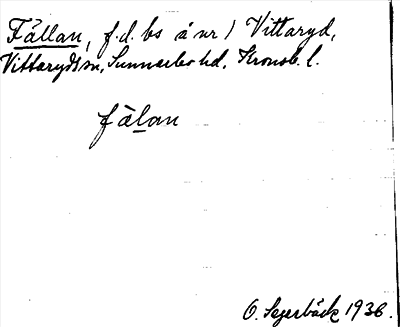 Fällan, f.d. bs å nr 1 Vittaryd,
Vittaryds sn, Sunnerbo hd, Kronob. l.
fàlan
O. Segerbäck 1936.